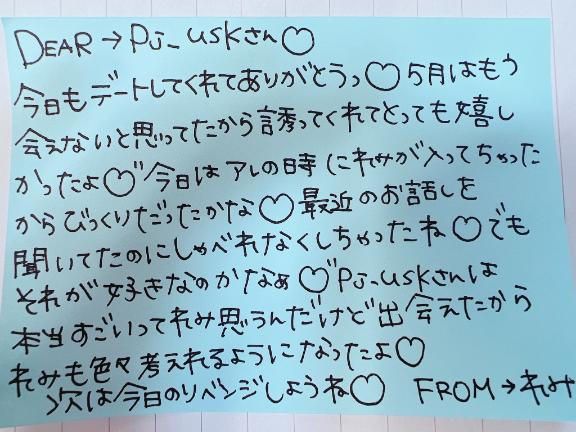 DEAR→Pj_uskさん♡
今日もデートしてくれてありがとうっ♡5月はもう
会えないと思ってたから誘ってくれてとっても嬉し
かったよ♡゛今日はアレの日時にれみが入ってちゃった
からびっくりだったかな♡最近のお話しを
聞いてたのにしゃべれなくしちゃったね♡でも
それが好きなのかなぁ♡゛Pj_uskさんは
本当すごいってれみ思うんだけど出会えたから
れみも色々考えれるようになったよ♡
次は今日のリベンジしようね♡ FROM→れみ